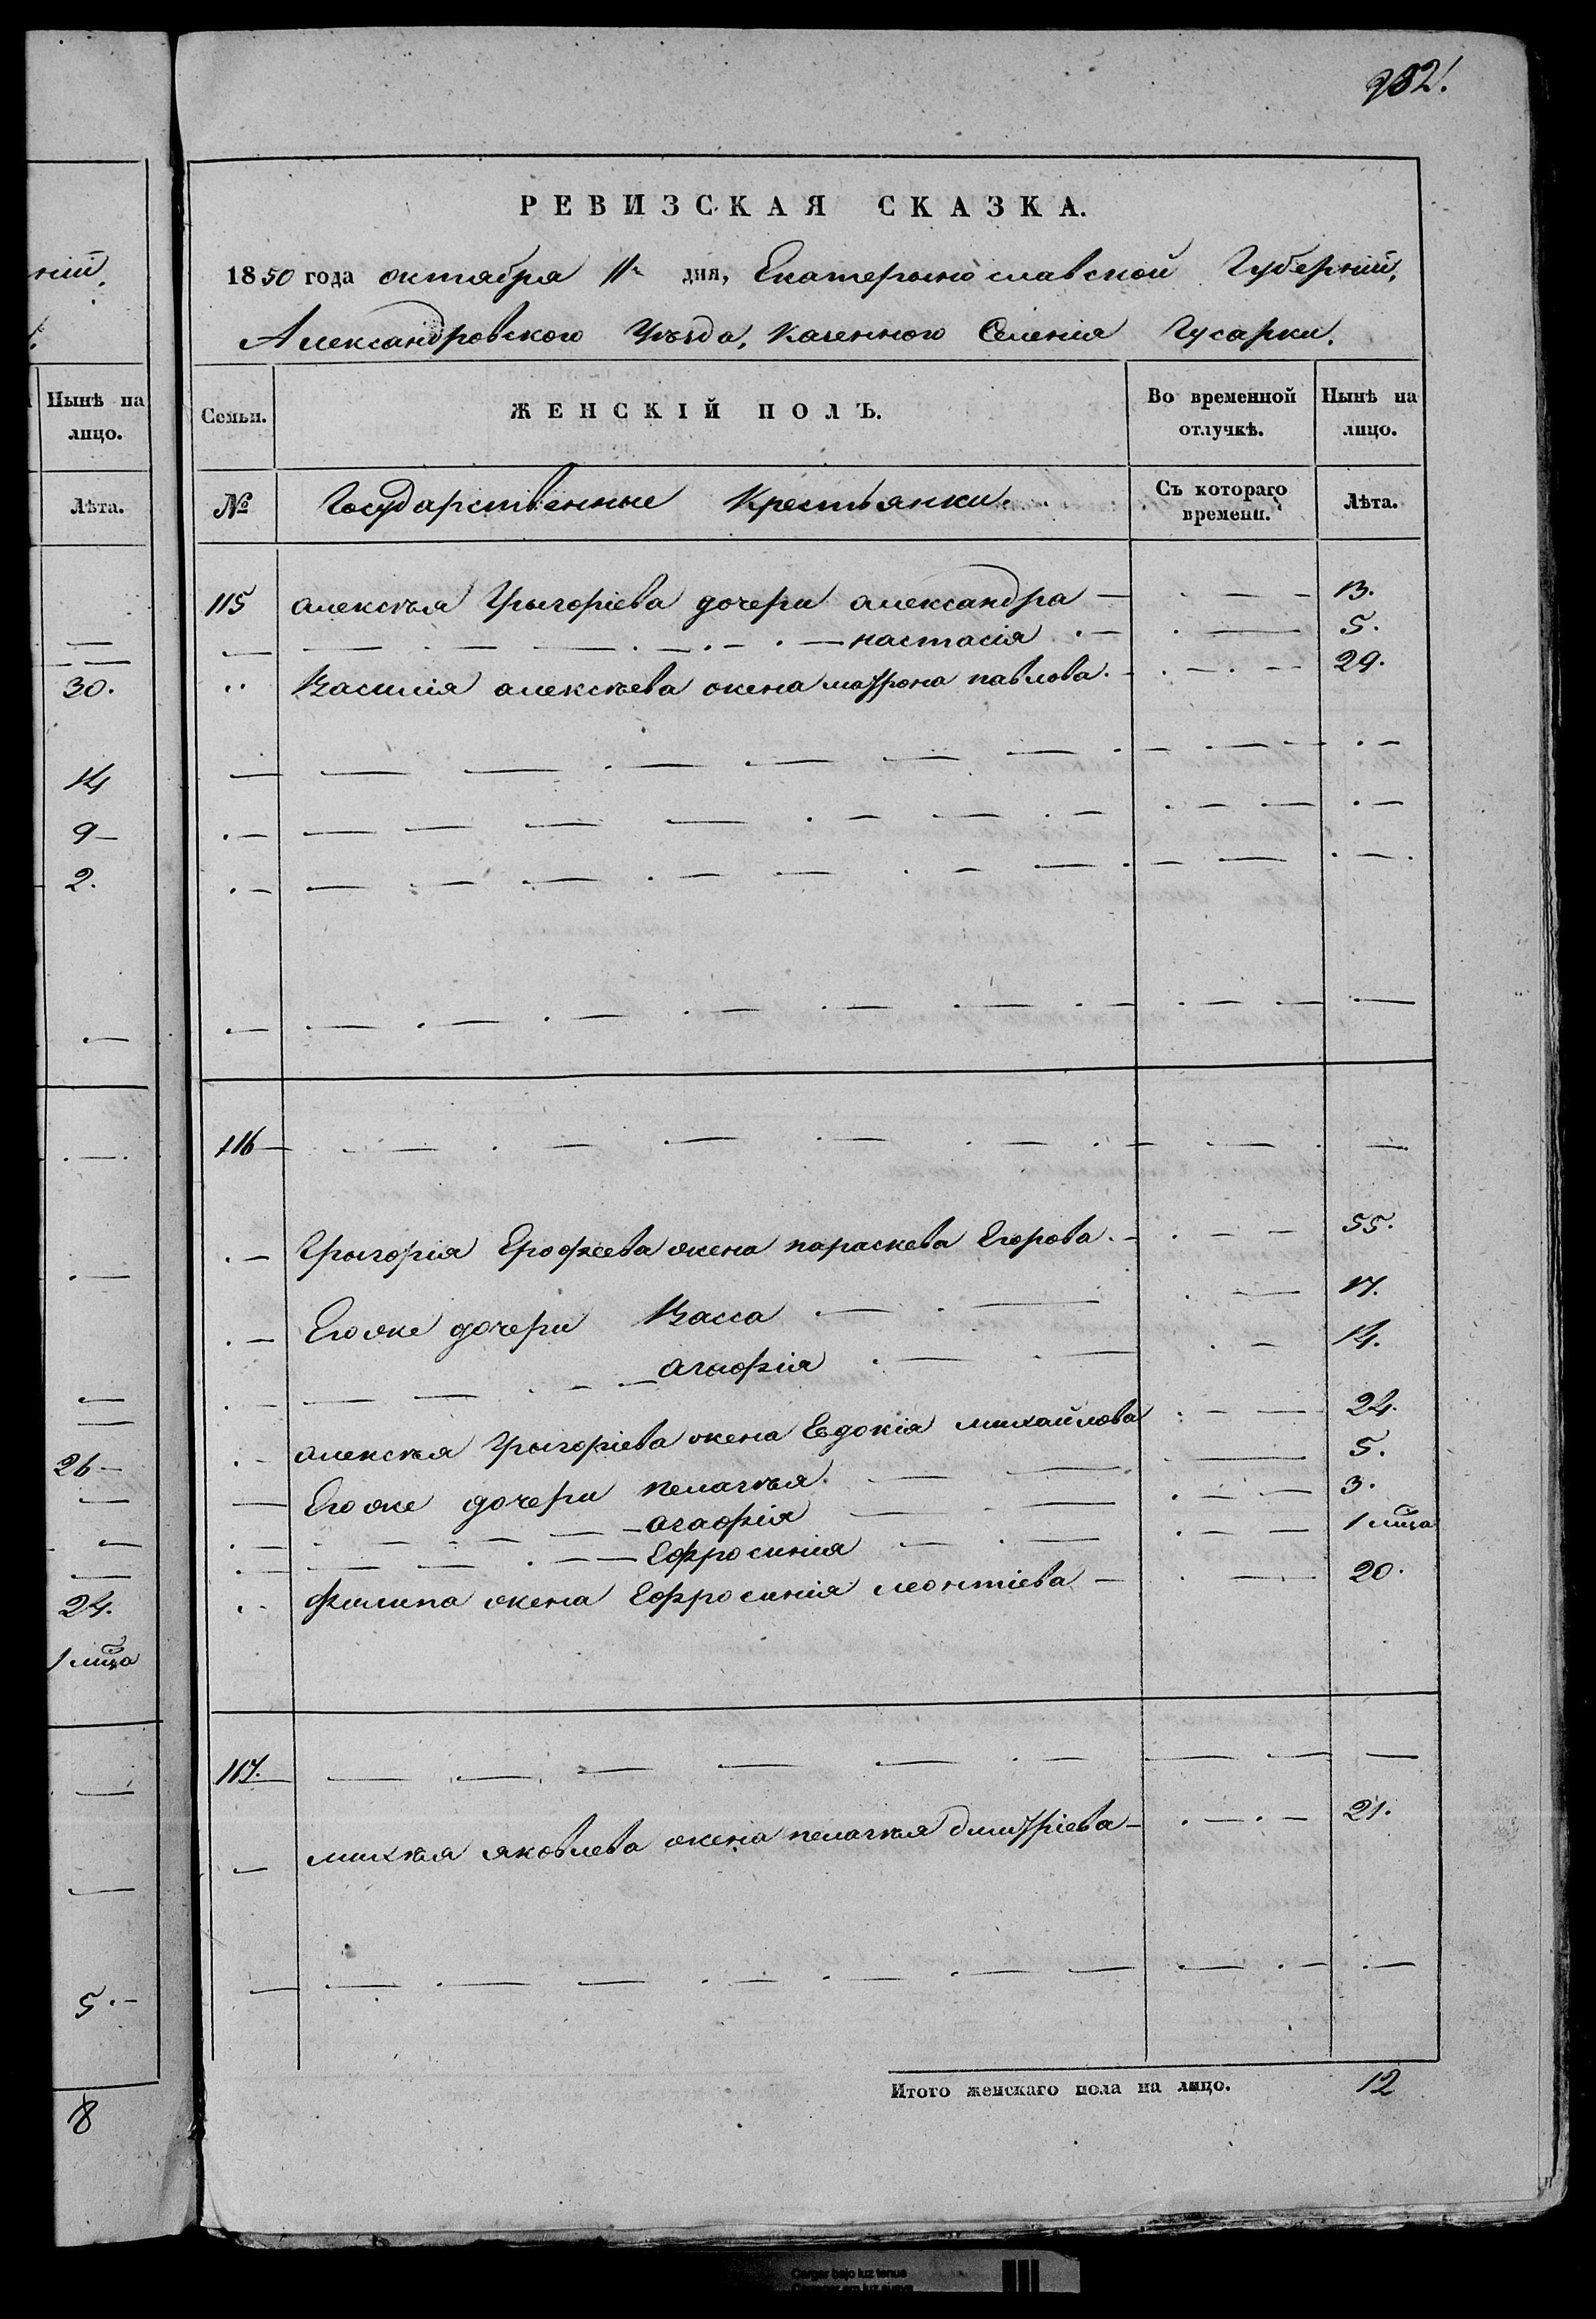 ній,
Нынѣ на
лицо.
Лѣта.
30.
14
9
2.
26
24.
1 мѣсца
5.
8
РЕВИЗСКАЯ СКАЗКА.
1850 года октября 11 дня, Екатерыно славской Губерніи,
Александровского Уѣзда, Казенного Селенія Гусарки.
Семьи. ЖЕНСКІЙ ПОЛЪ. Во временной отлучкѣ. Нынѣ на лицо.
№ Государственные Крестьянки. Съ котораго времени. Лѣта.
115 алексѣя Григоріева дочери александра — 13.
— настасія — 5.
Василія алексѣева жена матрона павлова. 29.
116
Григорія Ерофеева жена параскева Егорова. 55.
Его же дочери Васса — 17.
— агафія — 14.
алексѣя Григоріева жена Евдокія михайлова 24.
Его же дочери пелагѣя. 5.
— агафія — 3.
— Ефросинія — 1 мѣсца
филипа жена Ефросинія леонтіева — 20.
117.
михѣя яковлева жена пелагѣя дмитріева — 21.
Итого женскаго пола на лицо. 12